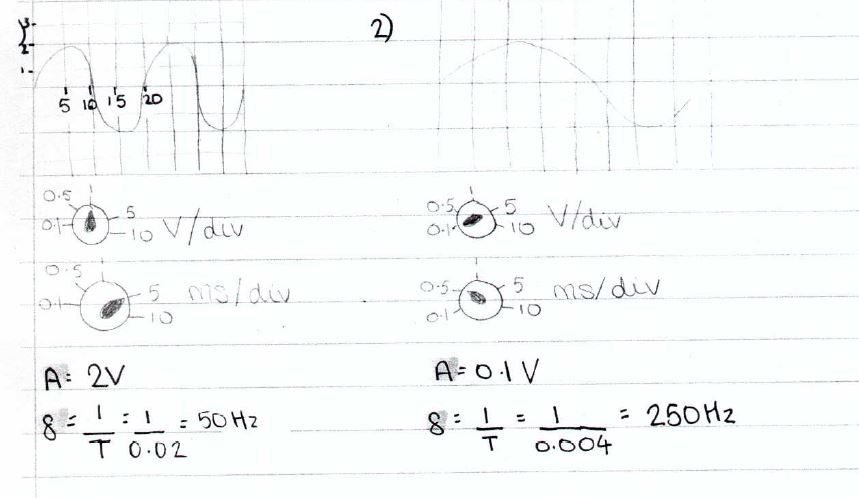 3
2)
2
1
5 10 15 20
0.5 1 5
0.1 10 V/div
0.5 1 5
0.1 10 V/div
0.5 1 5 ms/div
0.1 10
0.5 1 5 ms/div
0.1 10
A = 2V
A = 0.1V
f = 1/T = 1/0.02 = 50Hz
f = 1/T = 1/0.004 = 250Hz